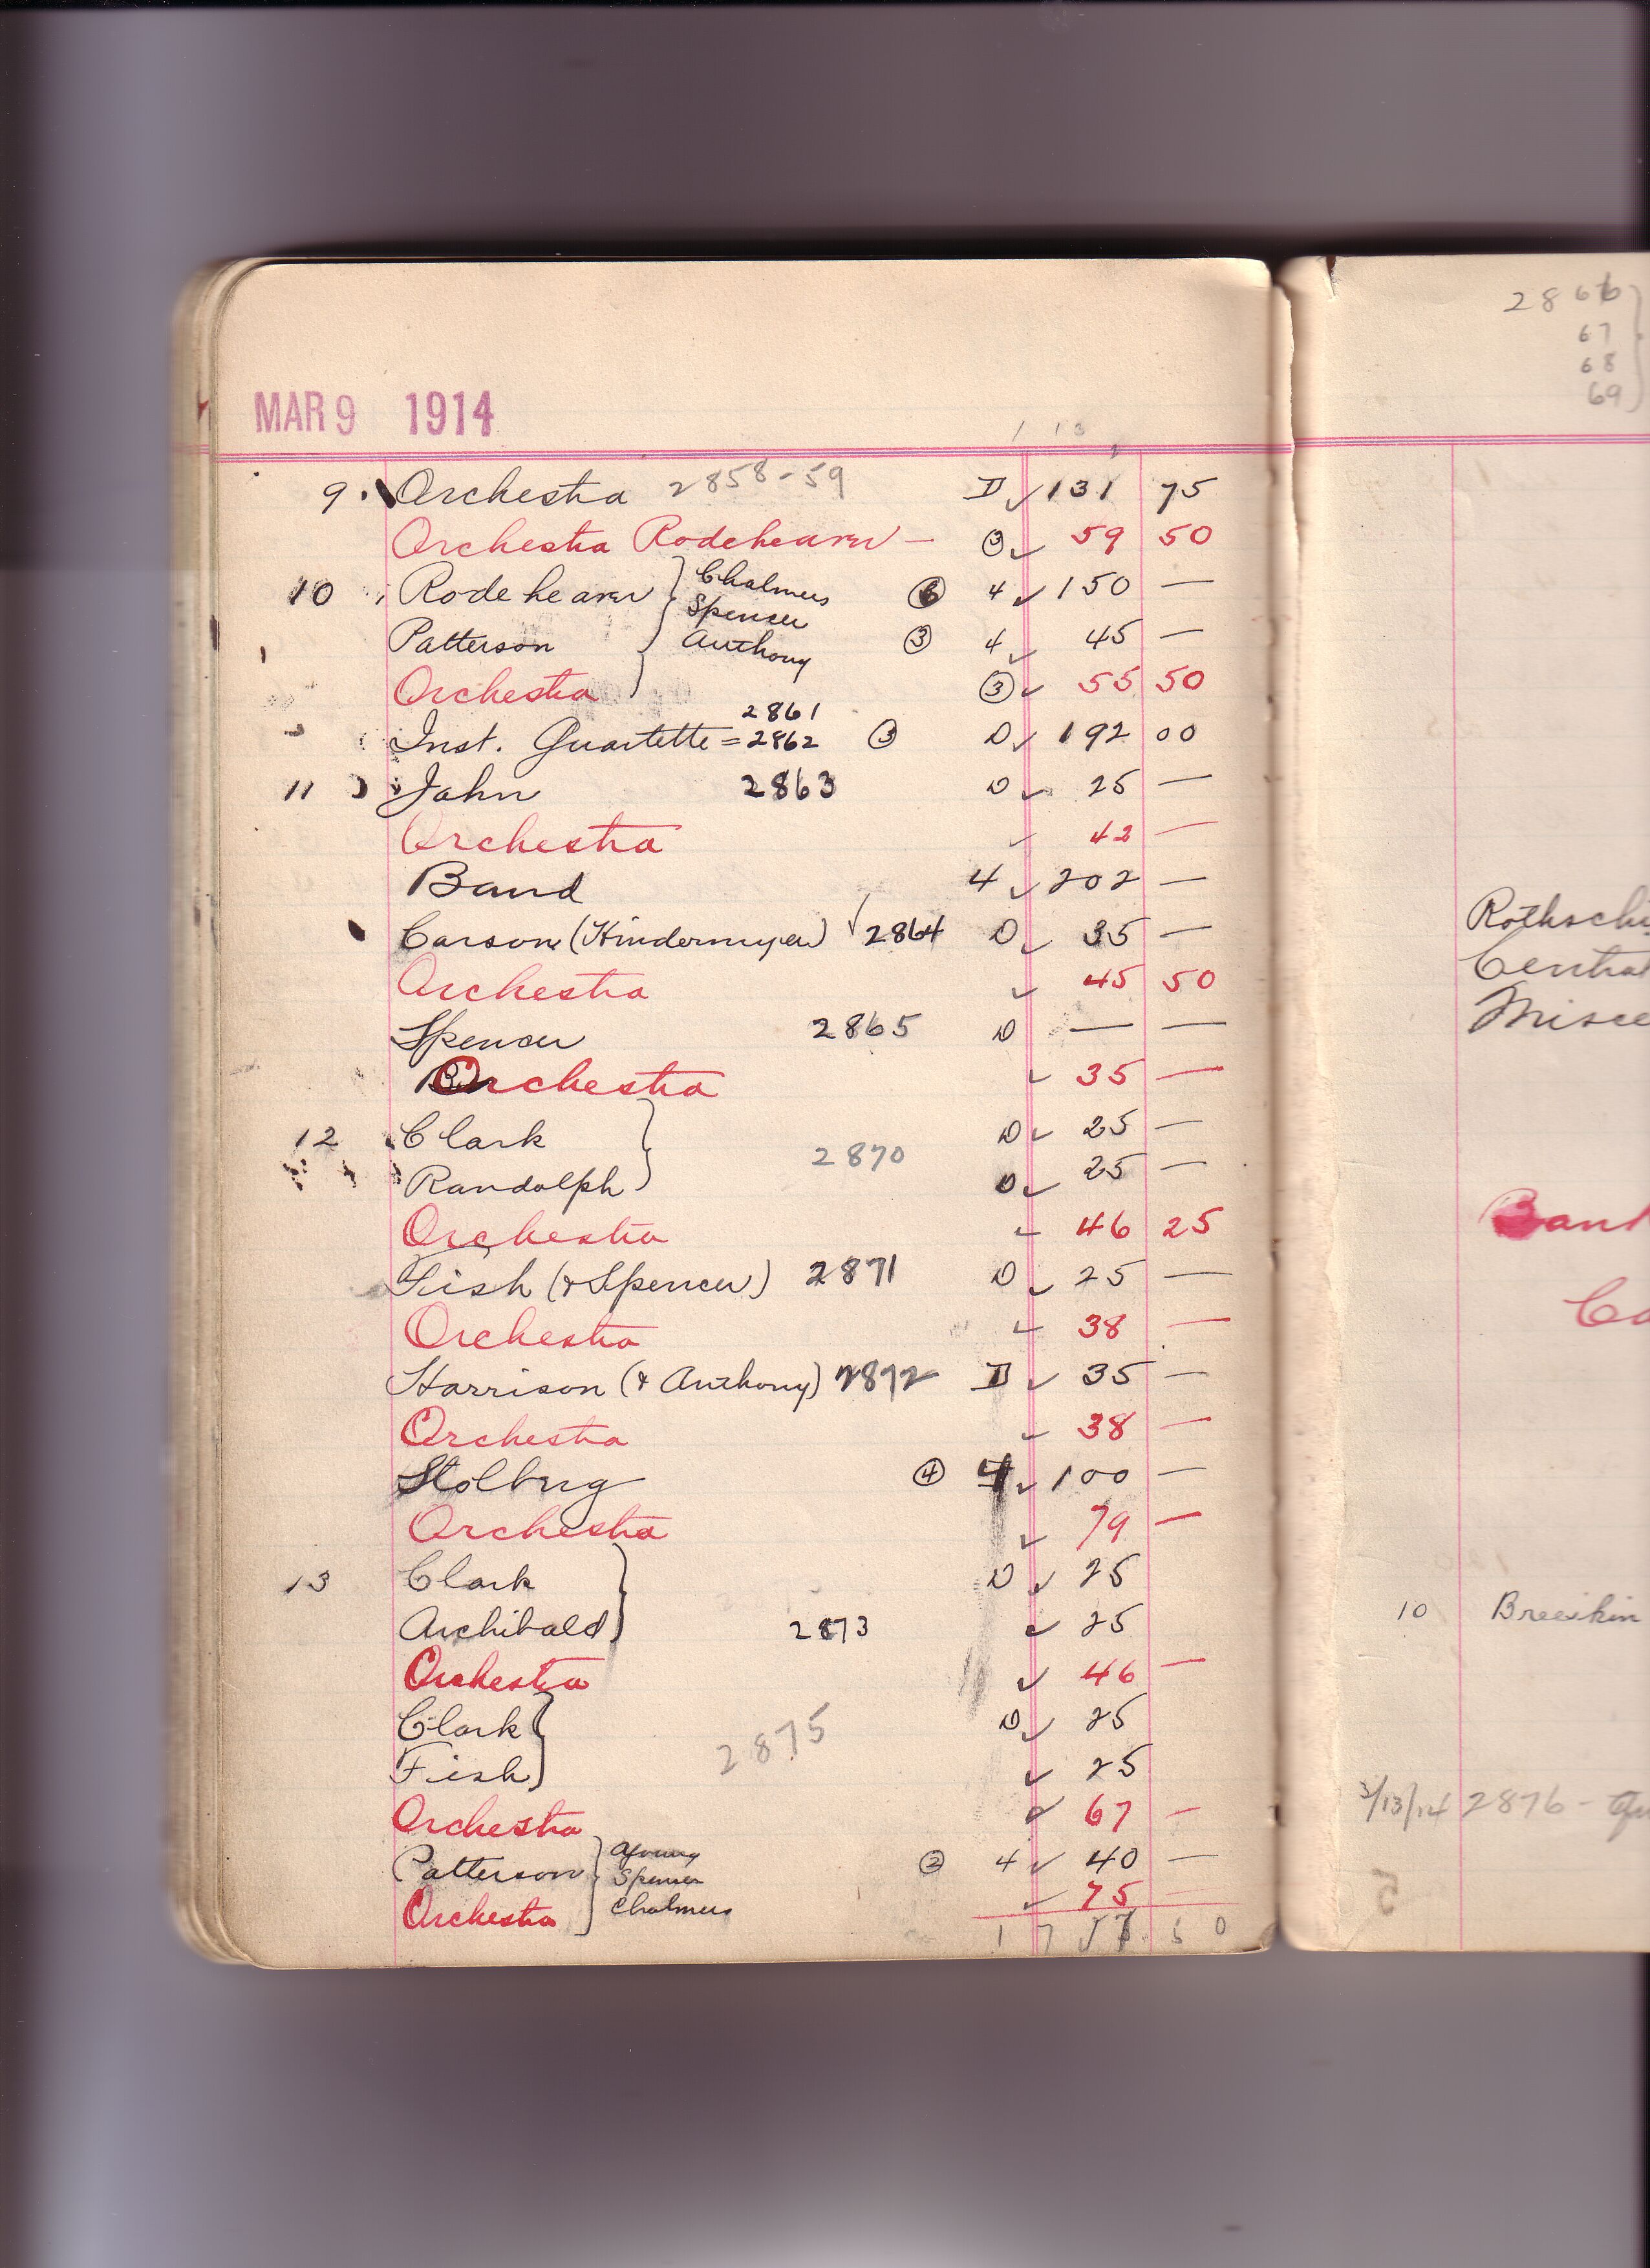 MAR 9 1914
1 13
9. Orchestra 2858-59 D ✓ 131 75
Orchestra Rodeheaver — ③ ✓ 59 50
10 Rodeheaver } Chalmers ⑥ 4 ✓ 150 —
Spencer
Patterson } Anthony ③ 4 ✓ 45 —
Orchestra ③ ✓ 55 50
2861
Inst. Quartette = 2862 ③ D ✓ 192 00
11 Jahn 2863 D ✓ 25 —
Orchestra ✓ 42 —
Band 4 ✓ 202 —
Carson (Hindermyer) √ 2864 D ✓ 35 —
Orchestra ✓ 45 50
Spencer 2865 D — —
Orchestra ✓ 35 —
12 Clark } D ✓ 25 —
2870
Randolph } D ✓ 25 —
Orchestra ✓ 46 25
Fish (& Spencer) 2871 D ✓ 25 —
Orchestra ✓ 38 —
Harrison (& Anthony) 2872 D ✓ 35 —
Orchestra ✓ 38 —
Stolbrg ④ 4 ✓ 100 —
Orchestra ✓ 79 —
13 Clark } D ✓ 25
Archibald } 2873 ✓ 25
Orchestra ✓ 46 —
Clark } D ✓ 25
2875
Fish } ✓ 25
Orchestra ✓ 67 —
Patterson } ② 4 ✓ 40 —
Spencer
Orchestra } Chalmers ✓ 75 —
2866 }
67
68
69
Rothschi
Central
Misce
Band
Co
10 Breeskin
3/13/14 2876 -